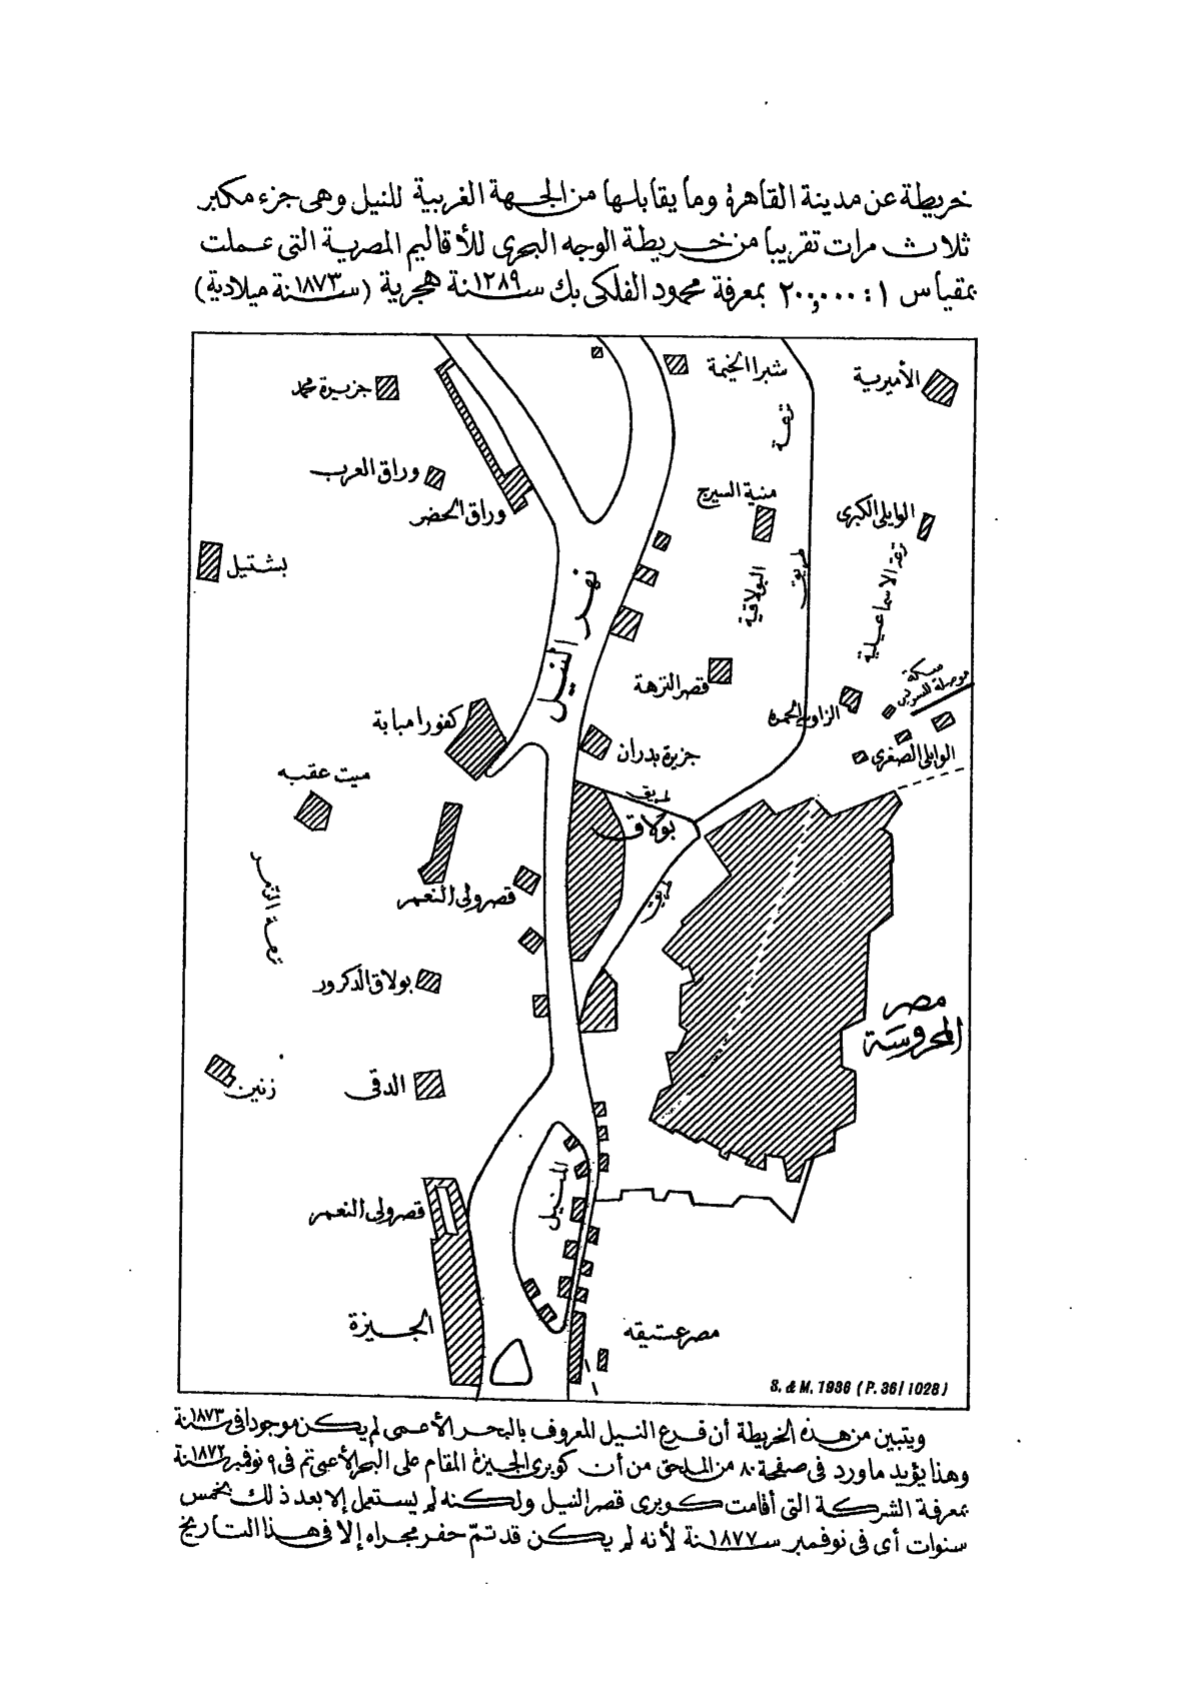 خريطة عن مدينة القاهرة وما يقابلها من الجهة الغربية للنيل وهى جزء مكبر
ثلاث مرات تقريبا من خريطة الوجه البحرى للأقاليم المصرية التى عملت
بمقياس ١ : ٢٠٠,٠٠٠ بمعرفة محمود الفلكى بك سنة ١٢٨٩ هجرية (سنة ١٨٧٣ ميلادية)
الأميرية
شبرا الخيمة
جزيرة محمد
ترعة
وراق العرب
منية السيرج
وراق الحضر
الوايلى الكبرى
بشتيل
طريق
البولاقية
ترعة الاسماعيلية
نهر النيل
سكة
موصلة للسويس
قصر النزهة
الزاوية الحمرة
كفور امبابة
جزيرة بدران
الوايلى الصغرى
ميت عقبه
طريق
بولاق
قصر ولى النعم
طريق
ترعة
بولاق الدكرور
مصر
المحروسة
زنين
الدقى
المنيل
قصر ولى النعم
الجيزة
مصر عتيقه
S. & M. 1936 (P. 36/1028)
ويتبين من هذه الخريطة أن فرع النيل المعروف بالبحر الأعمى لم يكن موجودا فى سنة ١٨٧٣
وهذا يؤيد ما ورد فى صفحة ٨٠ من الملحق من أن كوبرى الجيزة المقام على البحر الأعمى تم فى ٩ نوفمبر سنة ١٨٧٢
بمعرفة الشركة التى أقامت كوبرى قصر النيل ولكنه لم يستعمل إلا بعد ذلك بخمس
سنوات أى فى نوفمبر سنة ١٨٧٧ لأنه لم يكن قد تمّ حفر مجراه إلا فى هذا التاريخ